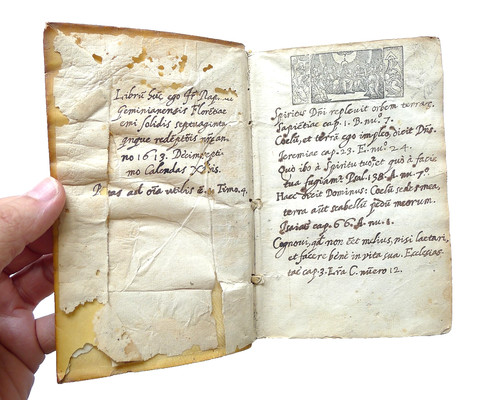 Librũ hũc ego
Geminianensis Florẽtiae
emi solidis septuaginta
quinque redẽptũs
no 1613. Decimo sept
mo Calendas
ad oĩa utilis ẽ. Timo. 4.
Spiritus Dñi replevit orbem terrarum
Sapiẽtiae cap. 1. B. nu.º 7.
Coelũ, et terrã ego impleo, dicit Dñs.
Jeremiae cap. 23. E. nu.º 24.
Quò ibo à Spiritu tuo, et quò à facie
tua fugiam? Psal. 138. A. nu. 7.
Haec dicit Dominus: Coelũ sedes mea,
terra autẽ scabellũ pedũ meorum.
Isaiae cap. 66. A. nu. 1.
Cognovi, quòd non eẽt melius, nisi laetari,
et facere benè in vita sua. Ecclesias-
tae cap. 3. C. numero 12.